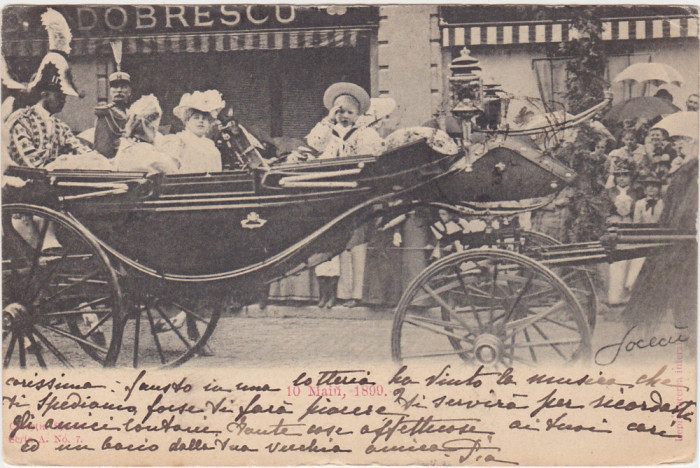 DOBRESCU
Socecŭ
carissima. Fausto in una lotteria ha vinto la musica che
10 Maiŭ, 1899.
ti spediamo, forse ti farà piacere e ti servirà per ricordarti
gli amici lontani. Tante cose affettuose ai tuoi cari
Seria A. No. 7.
ed un bacio dalla tua vecchia amica Pia